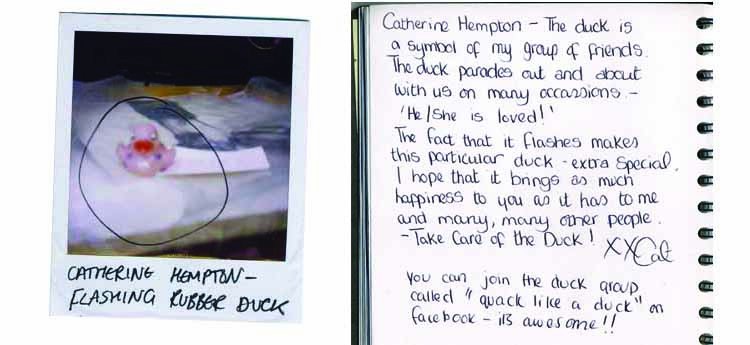 CATHERINE HEMPTON -
FLASHING RUBBER DUCK
Catherine Hempton - The duck is
a symbol of my group of friends.
The duck parades out and about
with us on many occassions. -
'He/She is loved!'
The fact that it flashes makes
this particular duck - extra special.
I hope that it brings as much
happiness to you as it has to me
and many, many other people.
- Take Care of the Duck!
XXCat
You can join the duck group
called "quack like a duck" on
facebook - its awesome!!